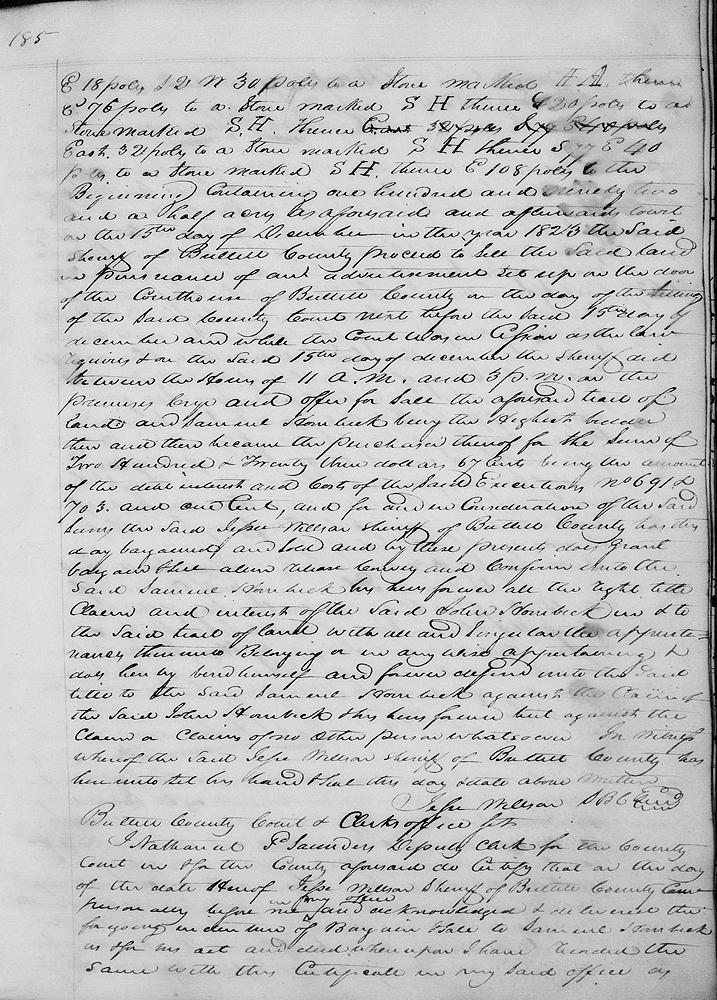 185
E 18 poles S 21 W 30 poles to a Stone marked H A. thence
E 76 poles to a Stone marked S H thence 420 poles to a
Stone marked S. H. thence East 32 poles
East. 32 poles to a Stone marked S H thence S 77 E 40
poles to a Stone marked S H. thence E 108 poles to the
Begining Containing one hundred and ninety two
and a half acres as aforesaid and afterwards towit
on the 15th day of December in the year 1823 the said
Sheriff of Bullitt County proceed to sell the said land
in pursuance of an advertisement set up on the door
of the Courthouse of Bullitt County on the day of the sitting
of the said County Court next before the said 15th day of
december and while the Court was in Session as the law
requires & on the said 15th day of december the Sheriff did
between the Hours of 11 A. M. and 3 p. m. on the
premises Crye and offer for Sale the aforesaid tract of
land and Samuel Hornbeck being the Highest bidder
then and there became the purchaser thereof for the Sum of
Two Hundred & Twenty three dollars 67 Cents being the amount
of the debt interest and Costs of the said Executions No 691 &
703. and one Cent, and for and in Consideration of the said
Sums the said Jesse Willson Sheriff of Bullitt County has this
day bargained and sold and by these presents does grant
bargain & sell alien release Convey and Confirm unto the
said Samuel Hornbeck his heirs forever all the right title
Claim and interest of the said John Hornbeck in & to
the said tract of land with all and Singular the appurte=
nances thereunto Belonging or in any wise appertaining &
does hereby bind himself and forever defend unto the said
title to the said Samuel Hornbeck against the Claim of
the said John Hornbeck & his heirs forever but against the
Claim or Claims of no other person whatsoever In Witness
whereof the said Jesse Willson Sheriff of Bullitt County has
hereunto set his hand & seal this day & date above written
Jesse Willson S B C
Bullitt County Court & Clerks office Sct
I Nathaniel P Saunders Deputy Clerk for the County
Court in & for the County aforesaid do Certify that on the day
of the date Hereof Jesse Willson Sheriff of Bullitt County Came
personally before me in my office and acknowledged & delivered the
foregoing indenture of Bargain & Sale to Samuel Hornbeck
as & for his act and deed whereupon I have recorded the
same with this Certificate in my said office as